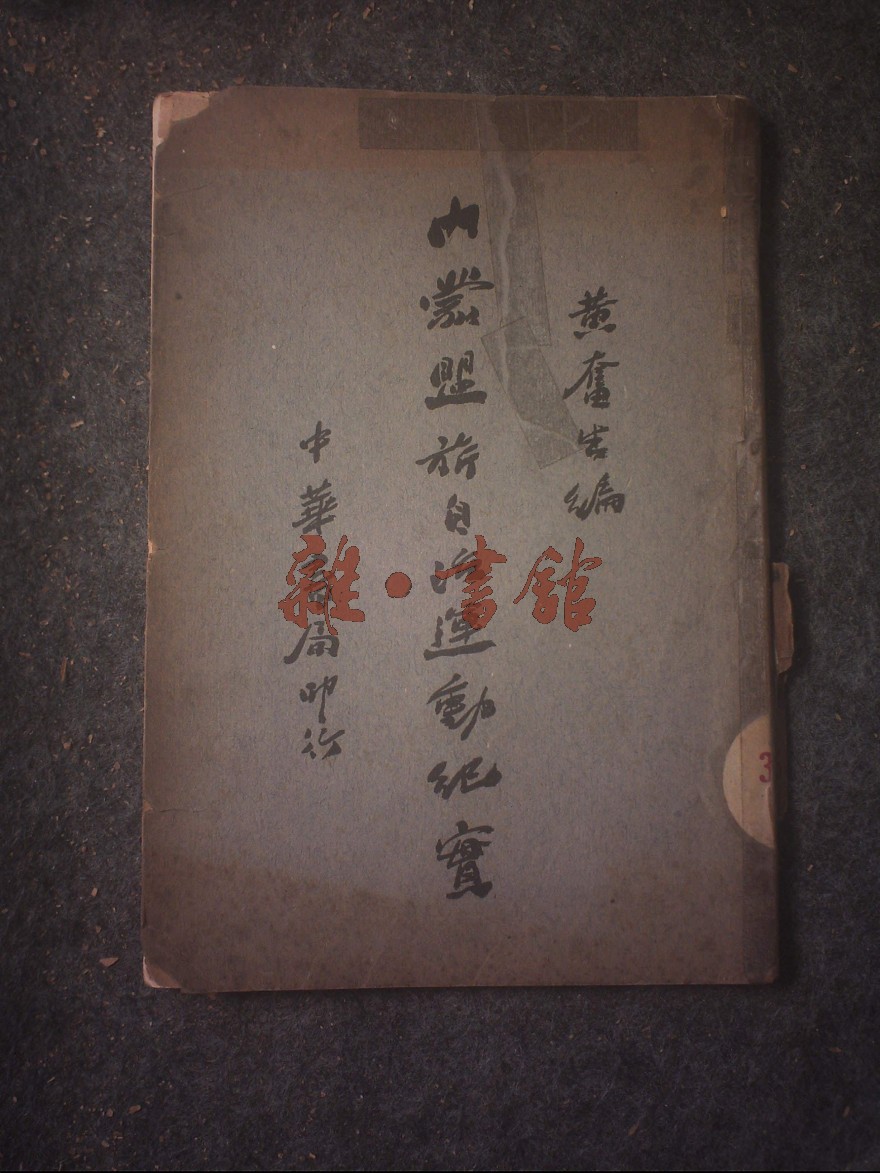 黄奮生編
内蒙盟旂自治運動紀實
中華書局印行
雜·書館
3